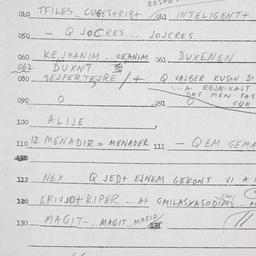 040 TFILES.. CUGESTRIBT / 041 INTELIGENT +
050 - Q JOCRES ... JOJCRES
060 KEJHANIM .. KEANIM 061 DUXENEN
062 DUXNT
080 SEJFERTEJRE / + Q VAJBER KUSHN DI
... A REJNIKAJT
DAS MEN FAS
090 O 091 O FUN
100 ALIJE
110 12 MENADIR = MENADER 111 - Q EM GEMA
112 NEX Q JEDT EJNEM GEKONT VI A
120 ERIVJOT KIPER ... AF
130 MAGIT- ... MAGIT